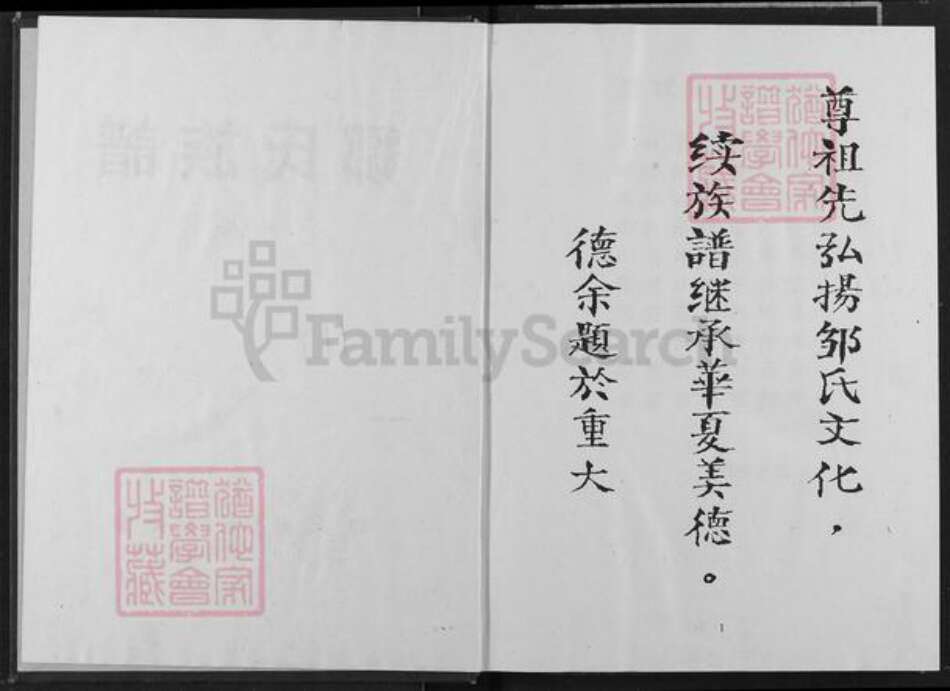 尊祖先弘揚邹氏文化，
续族譜继承華夏美德。
德余題於重大
1
FamilySearch
猶他家
譜學會
收藏
猶他家
譜學會
收藏